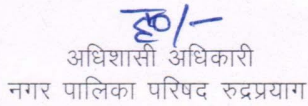 ह०/-
अधिशासी अधिकारी
नगर पालिका परिषद रुद्रप्रयाग